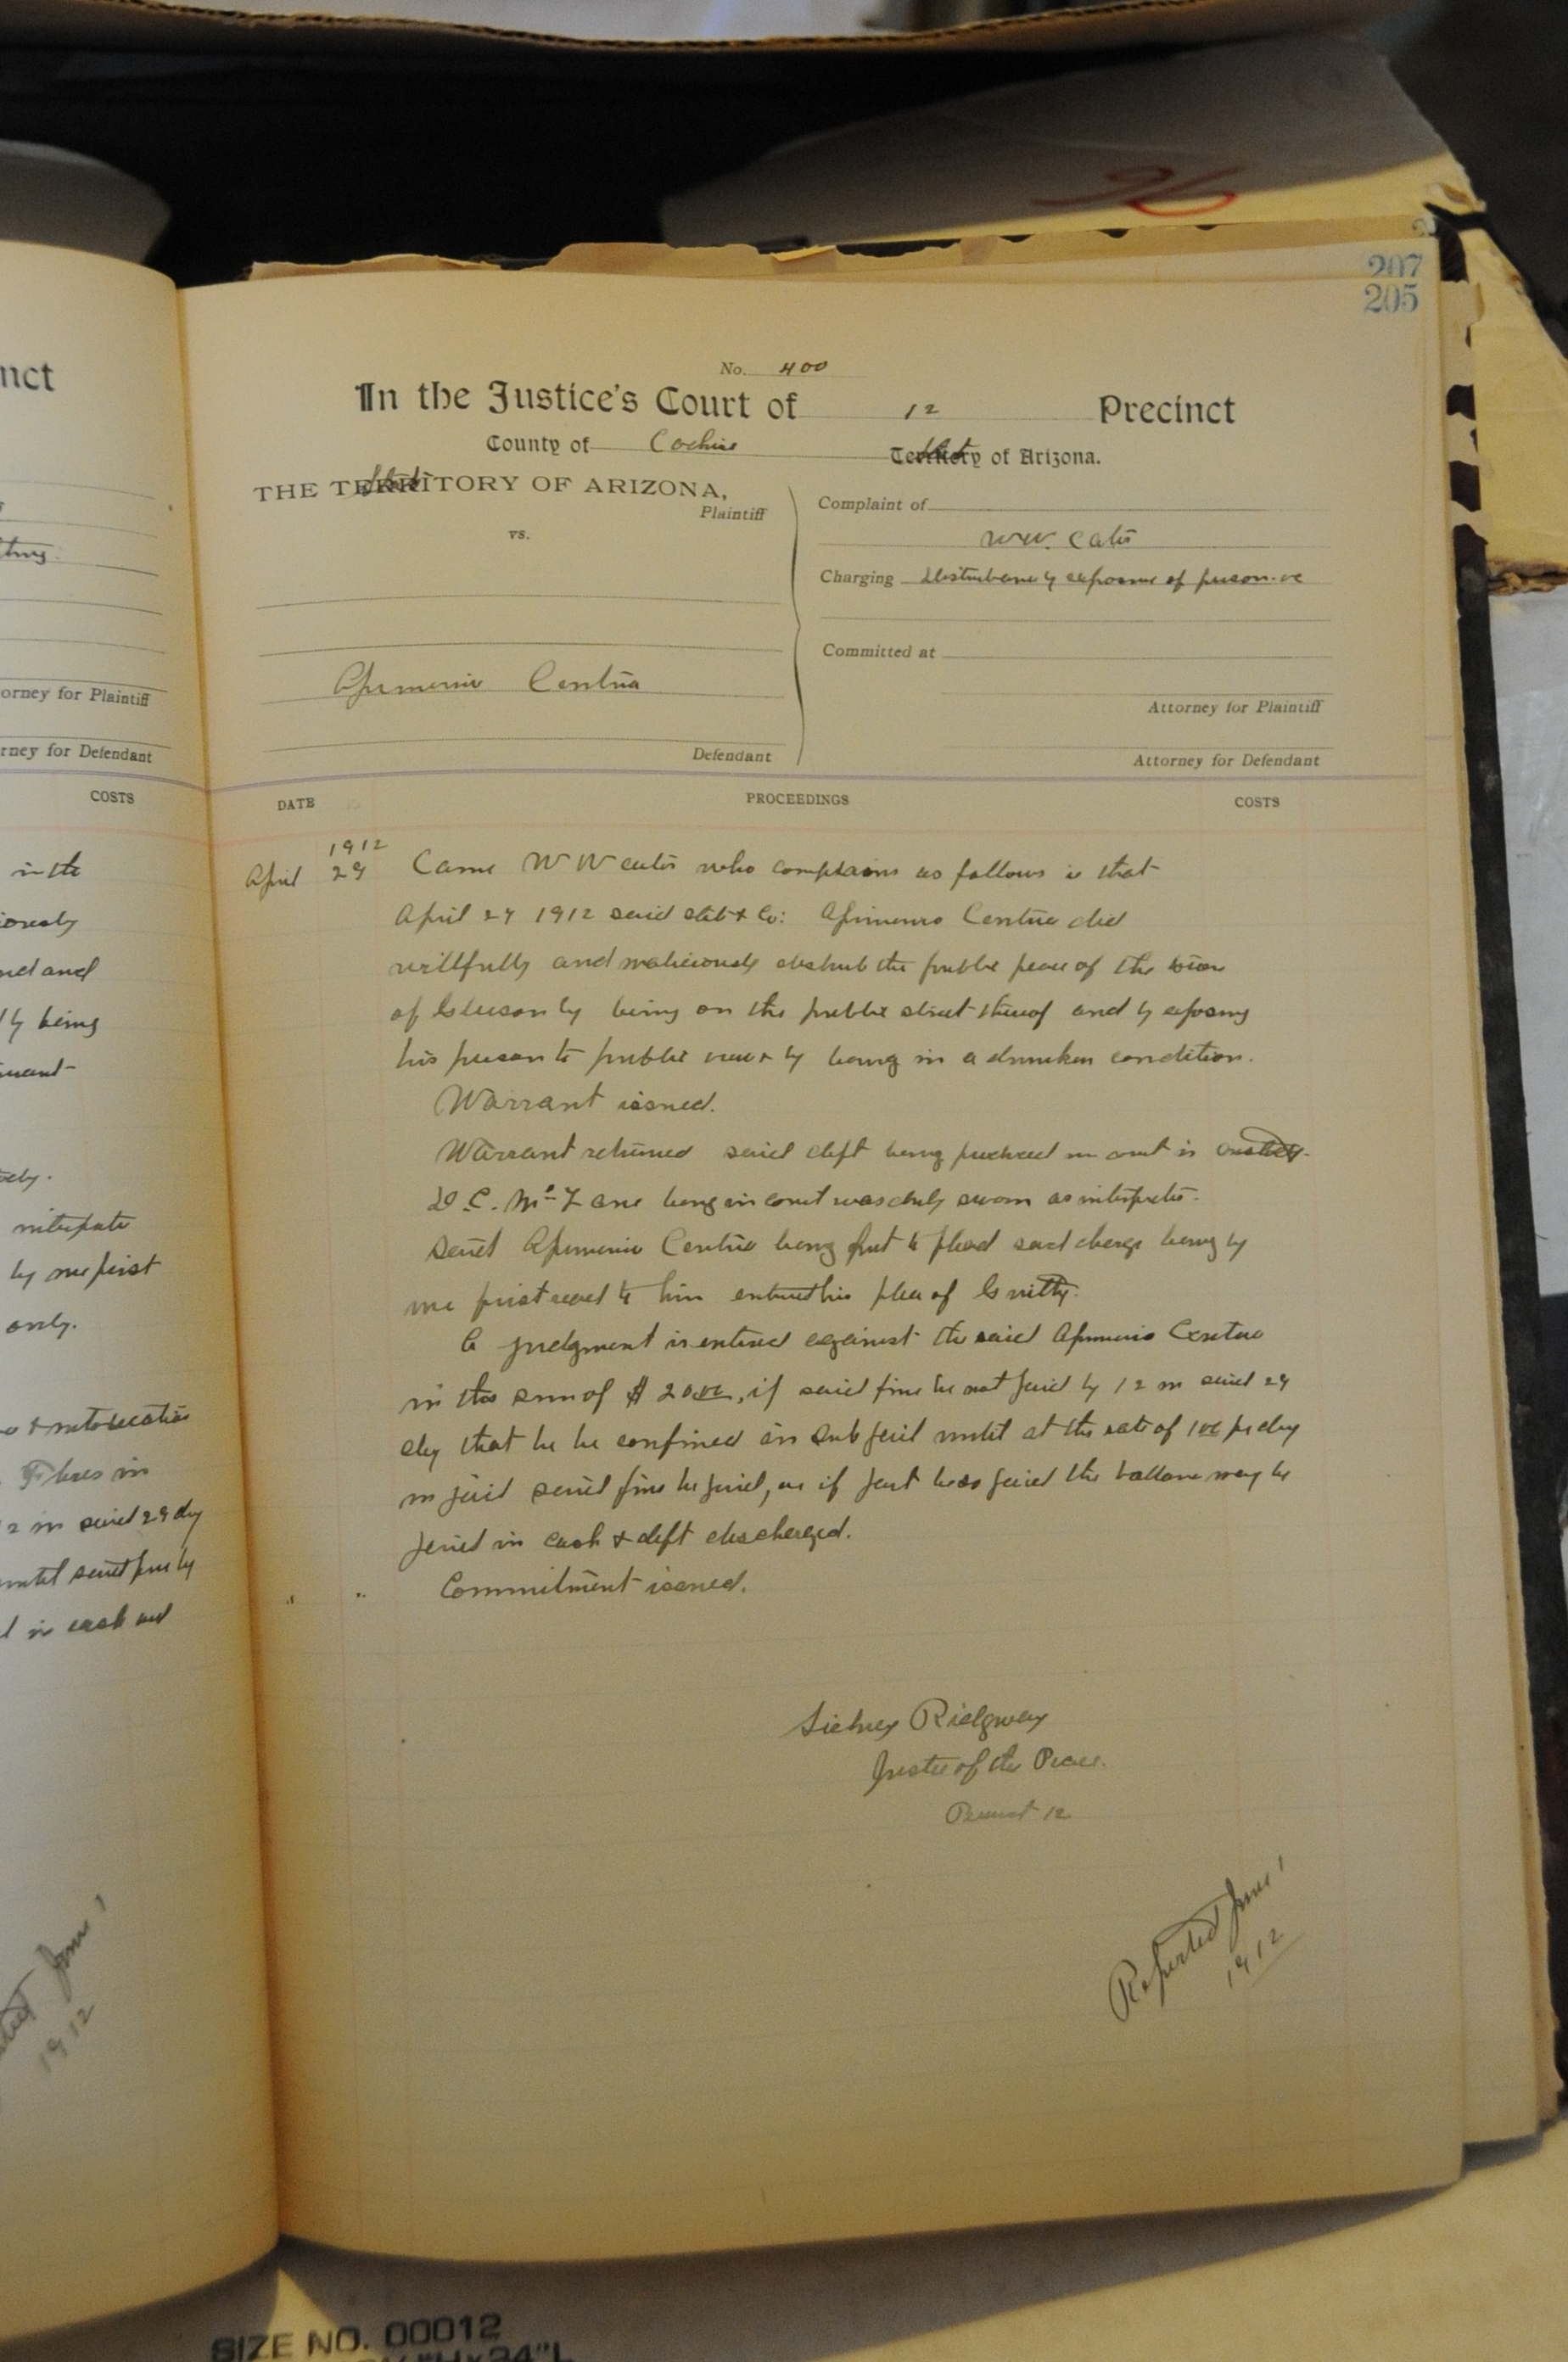 96
207
205
nct
No. 400
In the Justice's Court of 12 Precinct
County of Cochise State Territory of Arizona.
State
THE TERRITORY OF ARIZONA,
Plaintiff
vs.
Complaint of
W.W. Cates
Charging Disturbance by exposure of person. etc
Committed at
Centua
Defendant
Attorney for Plaintiff
Attorney for Defendant
orney for Plaintiff
rney for Defendant
COSTS
DATE PROCEEDINGS COSTS
1912
April 29 Came W W Cates who complains as follows is that
April 27 1912 said state & Co: Centua did
willfully and maliciously disturb the public peace of the town
of Gleeson by being on the public street thereof and by exposing
his person to public view & by being in a drunken condition.
Warrant issued.
Warrant returned said deft being produced in court in custody.
D.C. McLane being in court was duly sworn as interpreter.
Said Centua being put to plead said charge being by
me first read to him entered his plea of Guilty.
A judgment is entered against the said Centua
in the sum of $20.00, if said fine be not paid by 12 m said 29
day that he be confined in sub jail until at the rate of 1.00 per day
in jail said fine be paid, or if part be so paid the ballance may be
paid in cash & deft discharged.
" " Commitment issued.
Sidney Ridgway
Justice of the Peace.
Precinct 12
Reported June 1
1912
in the
and
by being
by me first
only.
in
2 m said 29 day
until said fine by
in cash and
June 1
1912
SIZE NO. 00012